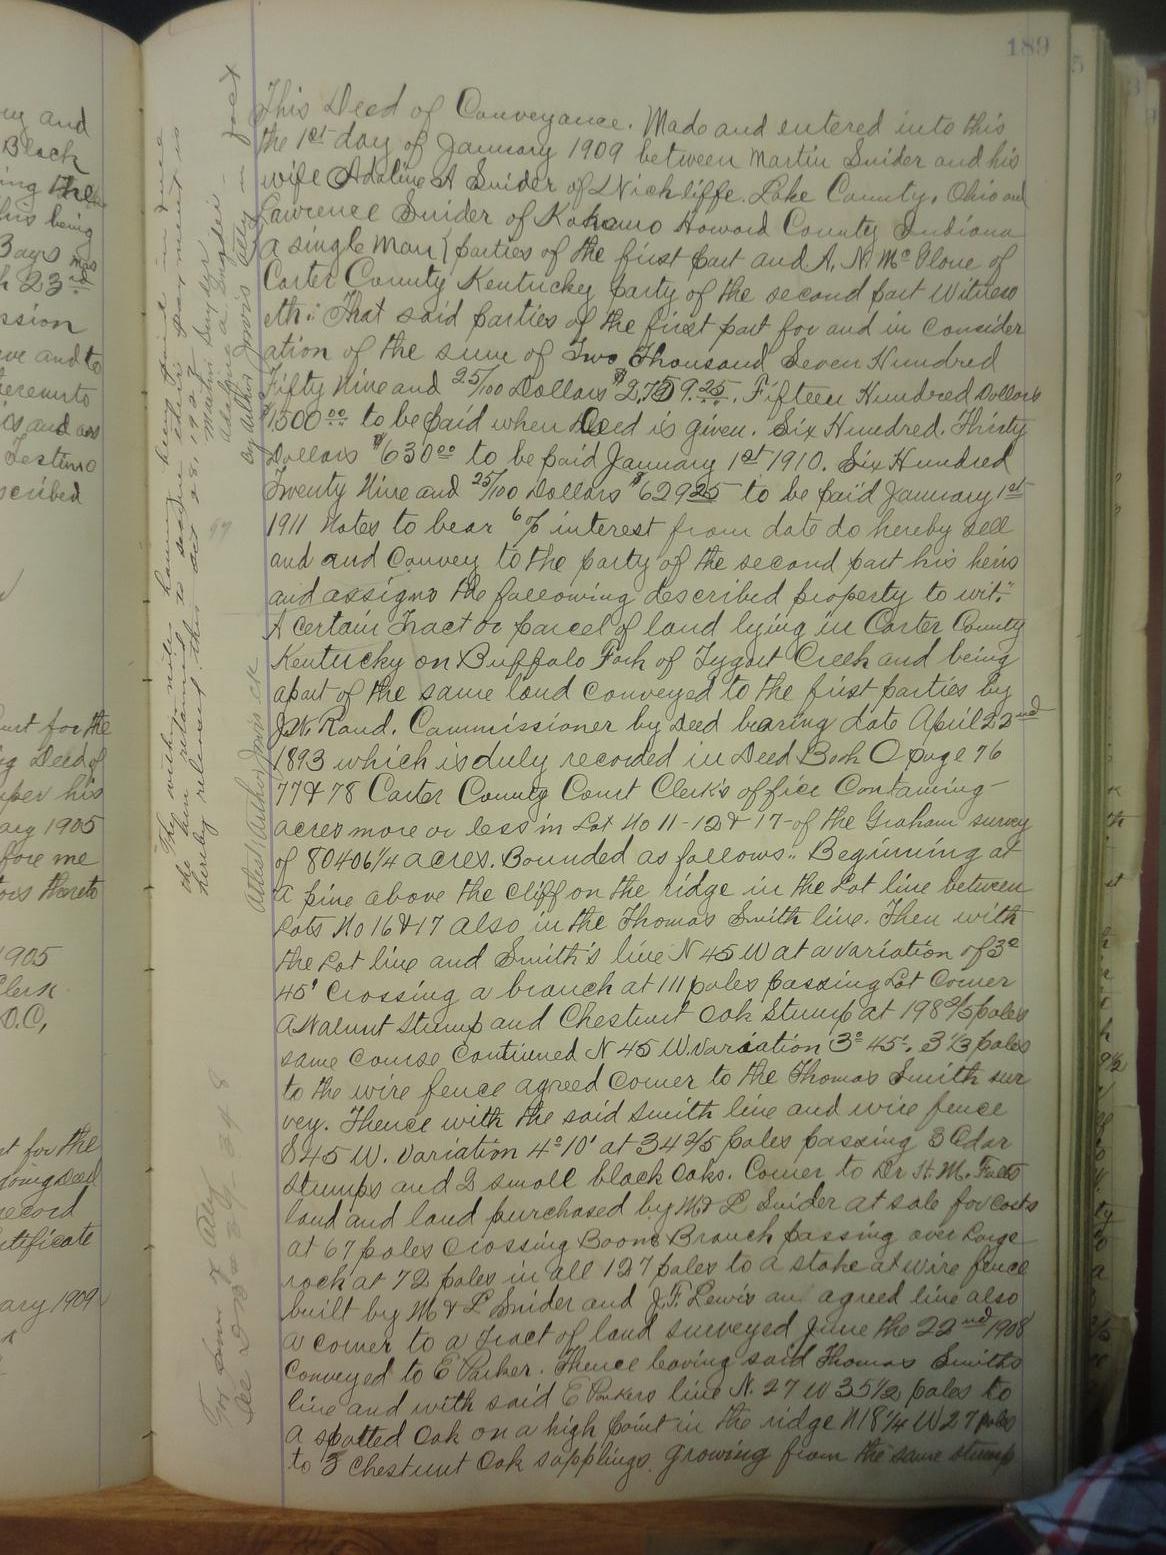 189
This Deed of Conveyance. Made and entered into this
the 1st day of January 1909 between Martin Snider and his
wife Adaline A Snider of Nickliffe. Lake County, Ohio and
Lawrence Snider of Kokomo Howard County Indiana
(a single man) parties of the first part and A. N. McGlone of
Carter County Kentucky party of the second part Witness
eth: That said parties of the first part for and in consider
ation of the sum of Two Thousand Seven Hundred
Fifty Nine and 25/100 Dollars $2,759.25. Fifteen Hundred Dollars
$1500.00 to be paid when Deed is given. Six Hundred. Thirty
Dollars $630.00 to be paid January 1st 1910. Six Hundred
Twenty Nine and 25/100 Dollars $629.25 to be paid January 1st
1911 Notes to bear 6% interest from date do hereby sell
and and Convey to the party of the second part his heirs
and assigns the following described property to wit:
A Certain Tract or parcel of land lying in Carter County
Kentucky on Buffalo Fork of Tygart Creek and being
a part of the same land conveyed to the first parties by
J.W. Rand. Commissioner by Deed bearing date April 22nd
1893 which is duly recorded in Deed Book O page 76
77 & 78 Carter County Court Clerk's office Containing
acres more or less in Lot No 11-12 & 17 of the Graham survey
of 80406 1/4 acres. Bounded as follows: Beginning at
a pine above the cliff on the ridge in the Lot line between
Lots No 16 & 17 also in the Thomas Smith line. Then with
the Lot line and Smith's line N 45 W at a variation of 3°
45' Crossing a branch at 111 poles passing Lot Corner
a Walnut Stump and Chestnut Oak Stump at 198 2/5 poles
same course Continued N 45 W. variation 3° 45'. 3 1/3 poles
to the wire fence agreed corner to the Thomas Smith sur
vey. Thence with the said smith line and wire fence
S 45 W. variation 4° 10' at 34 2/5 poles passing 3 Cdar
Stumps and 2 small black oaks. Corner to Dr H. M.
land and land purchased by M & L Snider at sale for costs
at 67 poles crossing Boons Branch passing over Large
rock at 72 poles in all 127 poles to a stake at wire fence
built by M & L Snider and J. F. Lewis an agreed line also
a corner to a Tract of land surveyed June the 22nd 1908
Conveyed to E Parker. Thence leaving said Thomas Smiths
line and with said E Parkers line N. 27 W 35 1/2 poles to
a spotted Oak on a high point in the ridge N 18 1/4 W 27 poles
to 3 Chestnut Oak sapplings growing from the same stump
The within notes having been paid
the lien retained to secure their payment is
hereby released this Oct 28, 1927
Martin Snyder
Adaline A Snyder
By Arthur Jarvis Atty in fact
Attest Arthur Jarvis clk